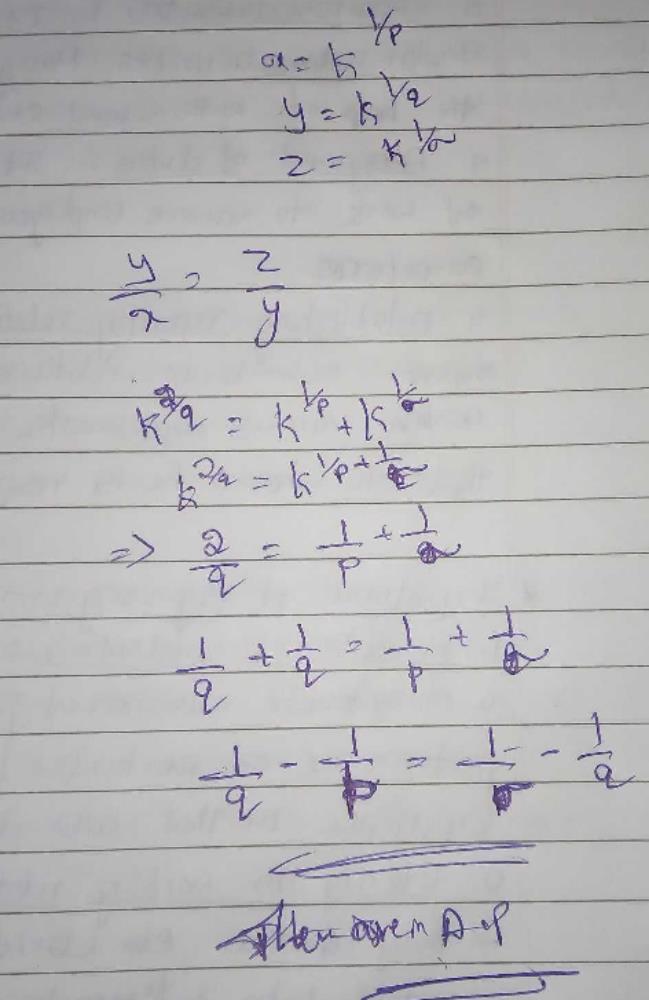 x = k^1/p
y = k^1/q
z = k^1/r
y/x = z/y
k^2/q = k^1/p + k^1/r
k^2/q = k^1/p + 1/r
=> 2/q = 1/p + 1/r
1/q + 1/q = 1/p + 1/r
1/q - 1/p = 1/r - 1/q
are in A.P